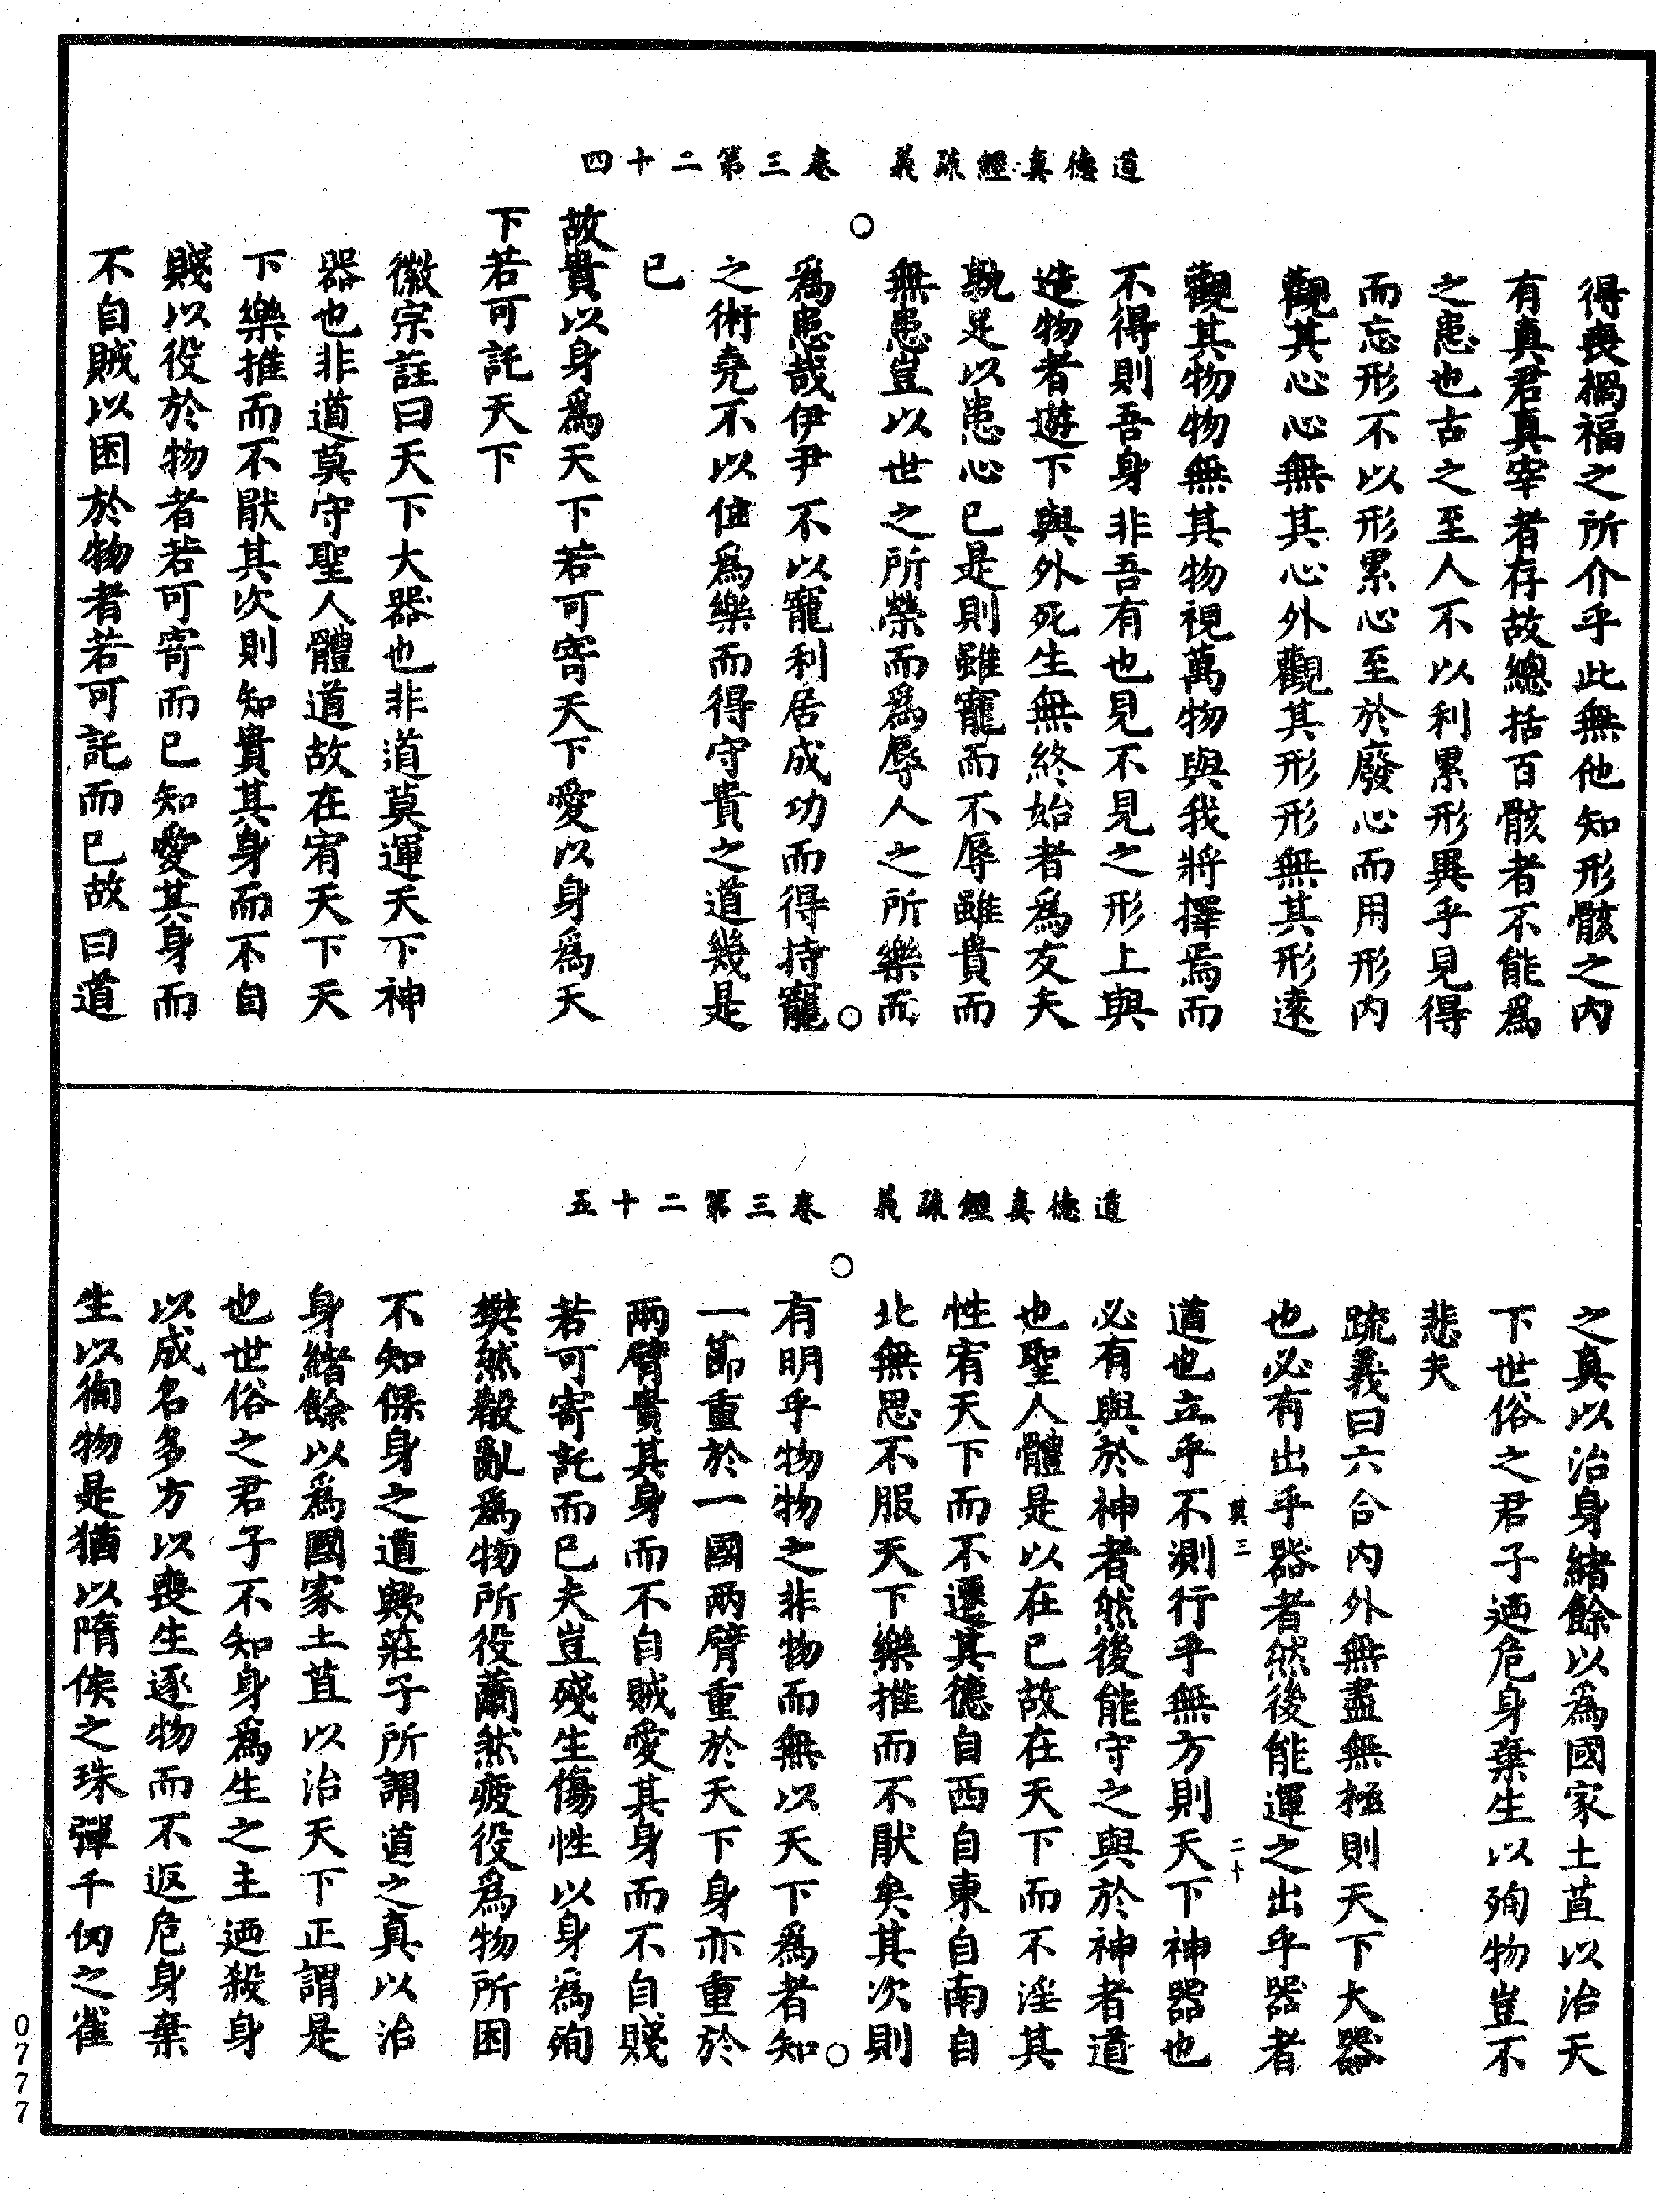 道德真經疏義　卷三第二十四
得喪禍福之所介乎此無他知形骸之內
有真君真宰者存故總括百骸者不能為
之患也古之至人不以利累形異乎見得
而忘形不以形累心至於廢心而用形內
觀其心心無其心外觀其形形無其形遠
觀其物物無其物視萬物與我將擇焉而
不得則吾身非吾有也見不見之形上與
造物者遊下與外死生無終始者為友夫
孰足以患心已是則雖寵而不辱雖貴而
無患豈以世之所榮而為辱人之所樂而
為患哉伊尹不以寵利居成功而得持寵
之術堯不以位為樂而得守貴之道幾是
已
故貴以身為天下若可寄天下愛以身為天
下若可託天下
徽宗註曰天下大器也非道莫運天下神
器也非道莫守聖人體道故在宥天下天
下樂推而不猒其次則知貴其身而不自
賤以役於物者若可寄而已知愛其身而
不自賊以困於物者若可託而已故曰道
道德真經疏義　卷三第二十五
之真以治身緒餘以為國家土苴以治天
下世俗之君子迺危身棄生以殉物豈不
悲夫
疏義曰六合內外無盡無極則天下大器
也必有出乎器者然後能運之出乎器者
其三　二十
道也立乎不測行乎無方則天下神器也
必有與於神者然後能守之與於神者道
也聖人體是以在已故在天下而不淫其
性宥天下而不遷其德自西自東自南自
北無思不服天下樂推而不猒矣其次則
有明乎物物之非物而無以天下為者知
一節重於一國兩臂重於天下身亦重於
兩臂貴其身而不自賊愛其身而不自賤
若可寄託而已夫豈殘生傷性以身為殉
樊然殽亂為物所役薾然疲役為物所困
不知保身之道歟莊子所謂道之真以治
身緒餘以為國家土苴以治天下正謂是
也世俗之君子不知身為生之主迺殺身
以成名多方以喪生逐物而不返危身棄
生以徇物是猶以隋侯之珠彈千仞之雀
0777